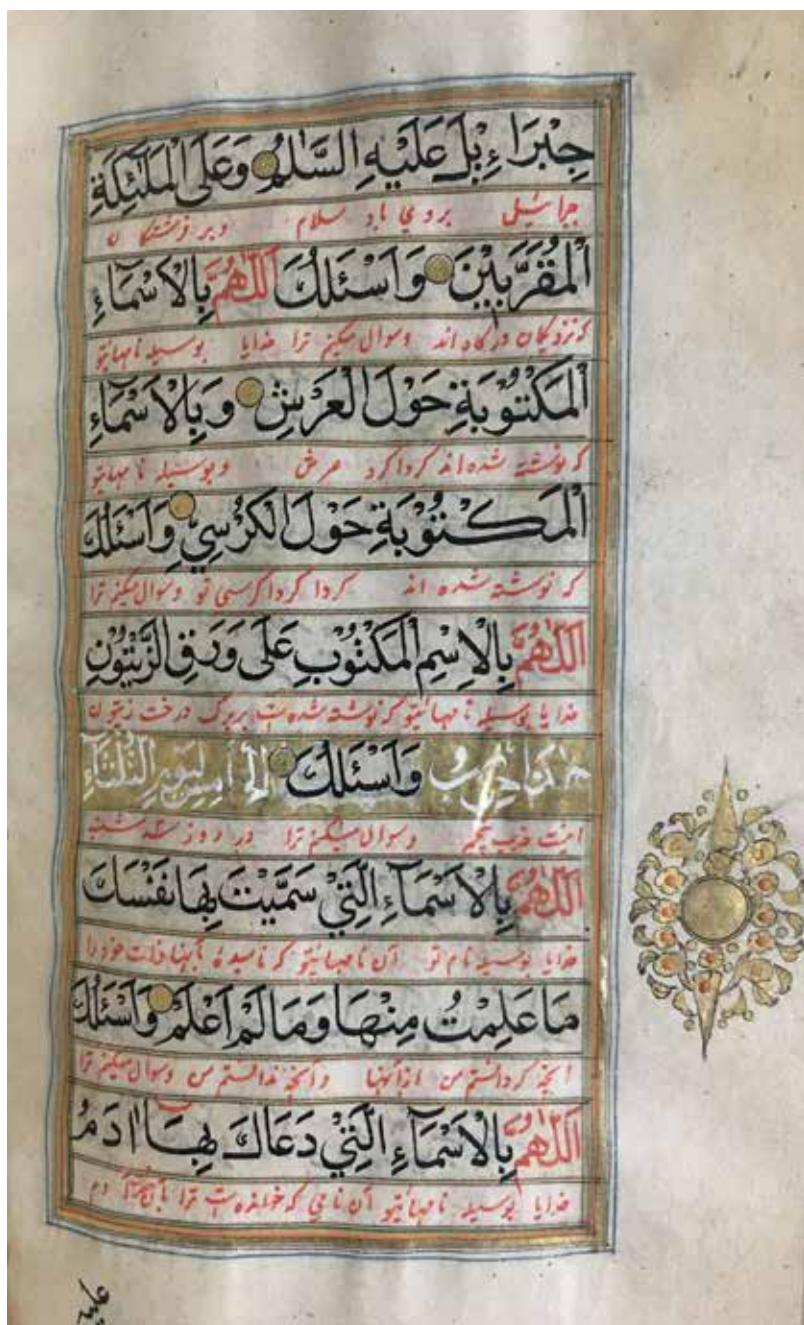 جِبْرَاءِيْلَ عَلَيْهِ السَّلَامُ وَعَلَى الْمَلٰئِكَةِ
جبرائیل بروی باد سلام وبر فرشتگان
الْمُقَرَّبِيْنَ وَاَسْئَلُكَ اَللّٰهُمَّ بِالْاَسْمَآءِ
که نزدیکان درگاه اند وسوال میکنم ترا خدایا بوسیله نامهائیتو
الْمَكْتُوْبَةِ حَوْلَ الْعَرْشِ وَبِالْاَسْمَآءِ
که نوشته شده اند گرداگرد عرش وبوسیله نامهائیتو
الْمَكْتُوْبَةِ حَوْلَ الْكُرْسِيِّ وَاَسْئَلُكَ
که نوشته شده اند گردا گرد کرسی تو وسوال میکنم ترا
اَللّٰهُمَّ بِالْاِسْمِ الْمَكْتُوْبِ عَلٰى وَرَقِ الزَّيْتُوْنِ
خدایا بوسیله نامهائیتو که نوشته شده است بربرگ درخت زیتون
وَاَسْئَلُكَ
وسوال میکنم ترا در روز سه شنبه
اَللّٰهُمَّ بِالْاَسْمَآءِ الَّتِيْ سَمَّيْتَ بِهَا نَفْسَكَ
خدایا بوسیله نام تو آن نامهائیتو که نامیدۀ بآنها ذات خود را
مَا عَلِمْتُ مِنْهَا وَمَا لَمْ اَعْلَمْ وَاَسْئَلُكَ
آنچه من ازآنها وآنچه ندانستم من وسوال میکنم ترا
اَللّٰهُمَّ بِالْاَسْمَآءِ الَّتِيْ دَعَاكَ بِهَا اٰدَمُ
خدایا بوسیله نامهائیتو آن نامی که خوانده است ترا آدم
عليه